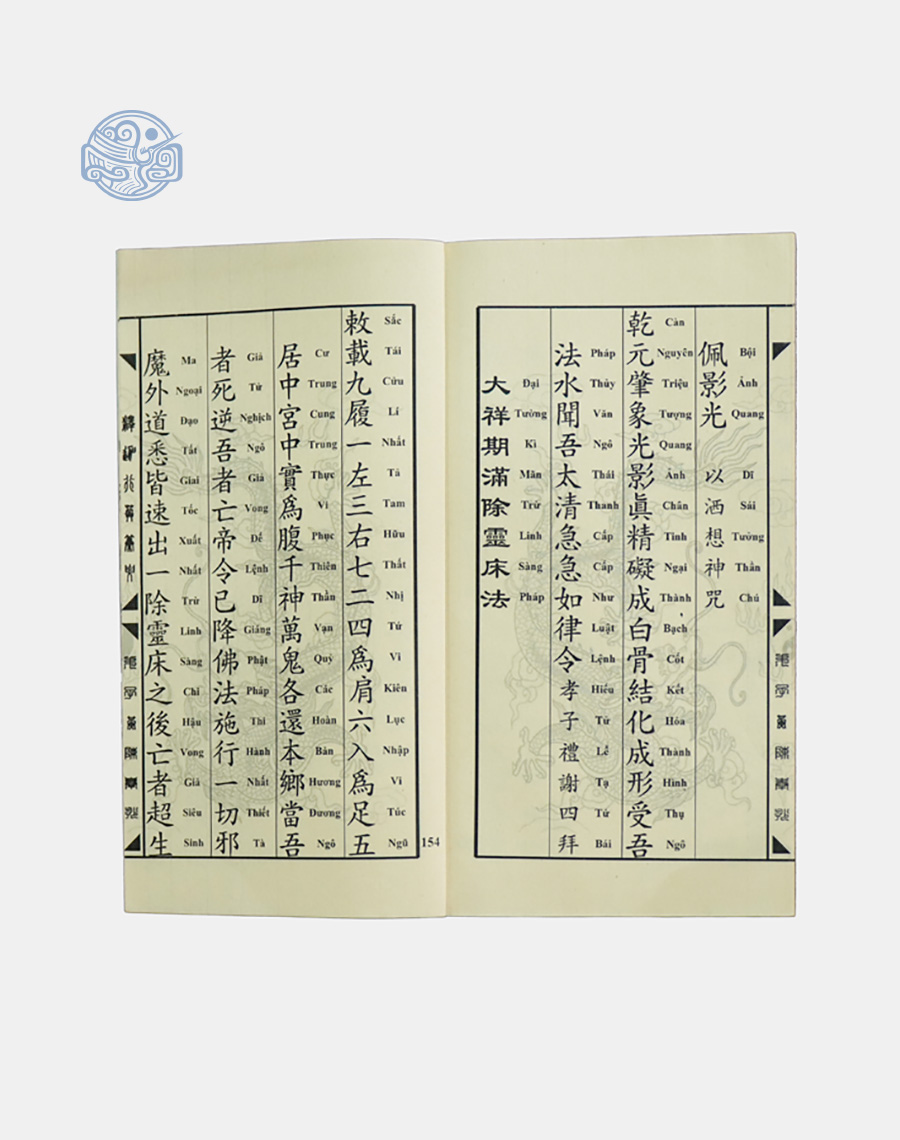 佩影光 以洒想神咒
Bội Ảnh Quang Dĩ Sái Tưởng Thần Chú
乾元肇象光影眞精礙成白骨結化成形受吾
Càn Nguyên Triệu Tượng Quang Ảnh Chân Tinh Ngại Thành Bạch Cốt Kết Hóa Thành Hình Thụ Ngô
法水聞吾太清急急如律令孝子禮謝四拜
Pháp Thủy Văn Ngô Thái Thanh Cấp Cấp Như Luật Lệnh Hiếu Tử Lễ Tạ Tứ Bái
大祥期滿除靈床法
Đại Tường Kì Mãn Trừ Linh Sàng Pháp
敕載九履一左三右七二四爲肩六入爲足五
Sắc Tái Cửu Lí Nhất Tả Tam Hữu Thất Nhị Tứ Vi Kiên Lục Nhập Vi Túc Ngũ
居中宮中實爲腹千神萬鬼各還本鄉當吾
Cư Trung Cung Trung Thực Vi Phục Thiên Thần Vạn Quỷ Các Hoàn Bản Hương Dương Ngô
者死逆吾者亡帝令已降佛法施行一切邪
Giả Tử Nghịch Ngô Giả Vong Đế Lệnh Dĩ Giáng Phật Pháp Thi Hành Nhất Thiết Tà
魔外道悉皆速出一除靈床之後亡者超生
Ma Ngoại Đạo Tất Giai Tốc Xuất Nhất Trừ Linh Sàng Chi Hậu Vong Giả Siêu Sinh
154